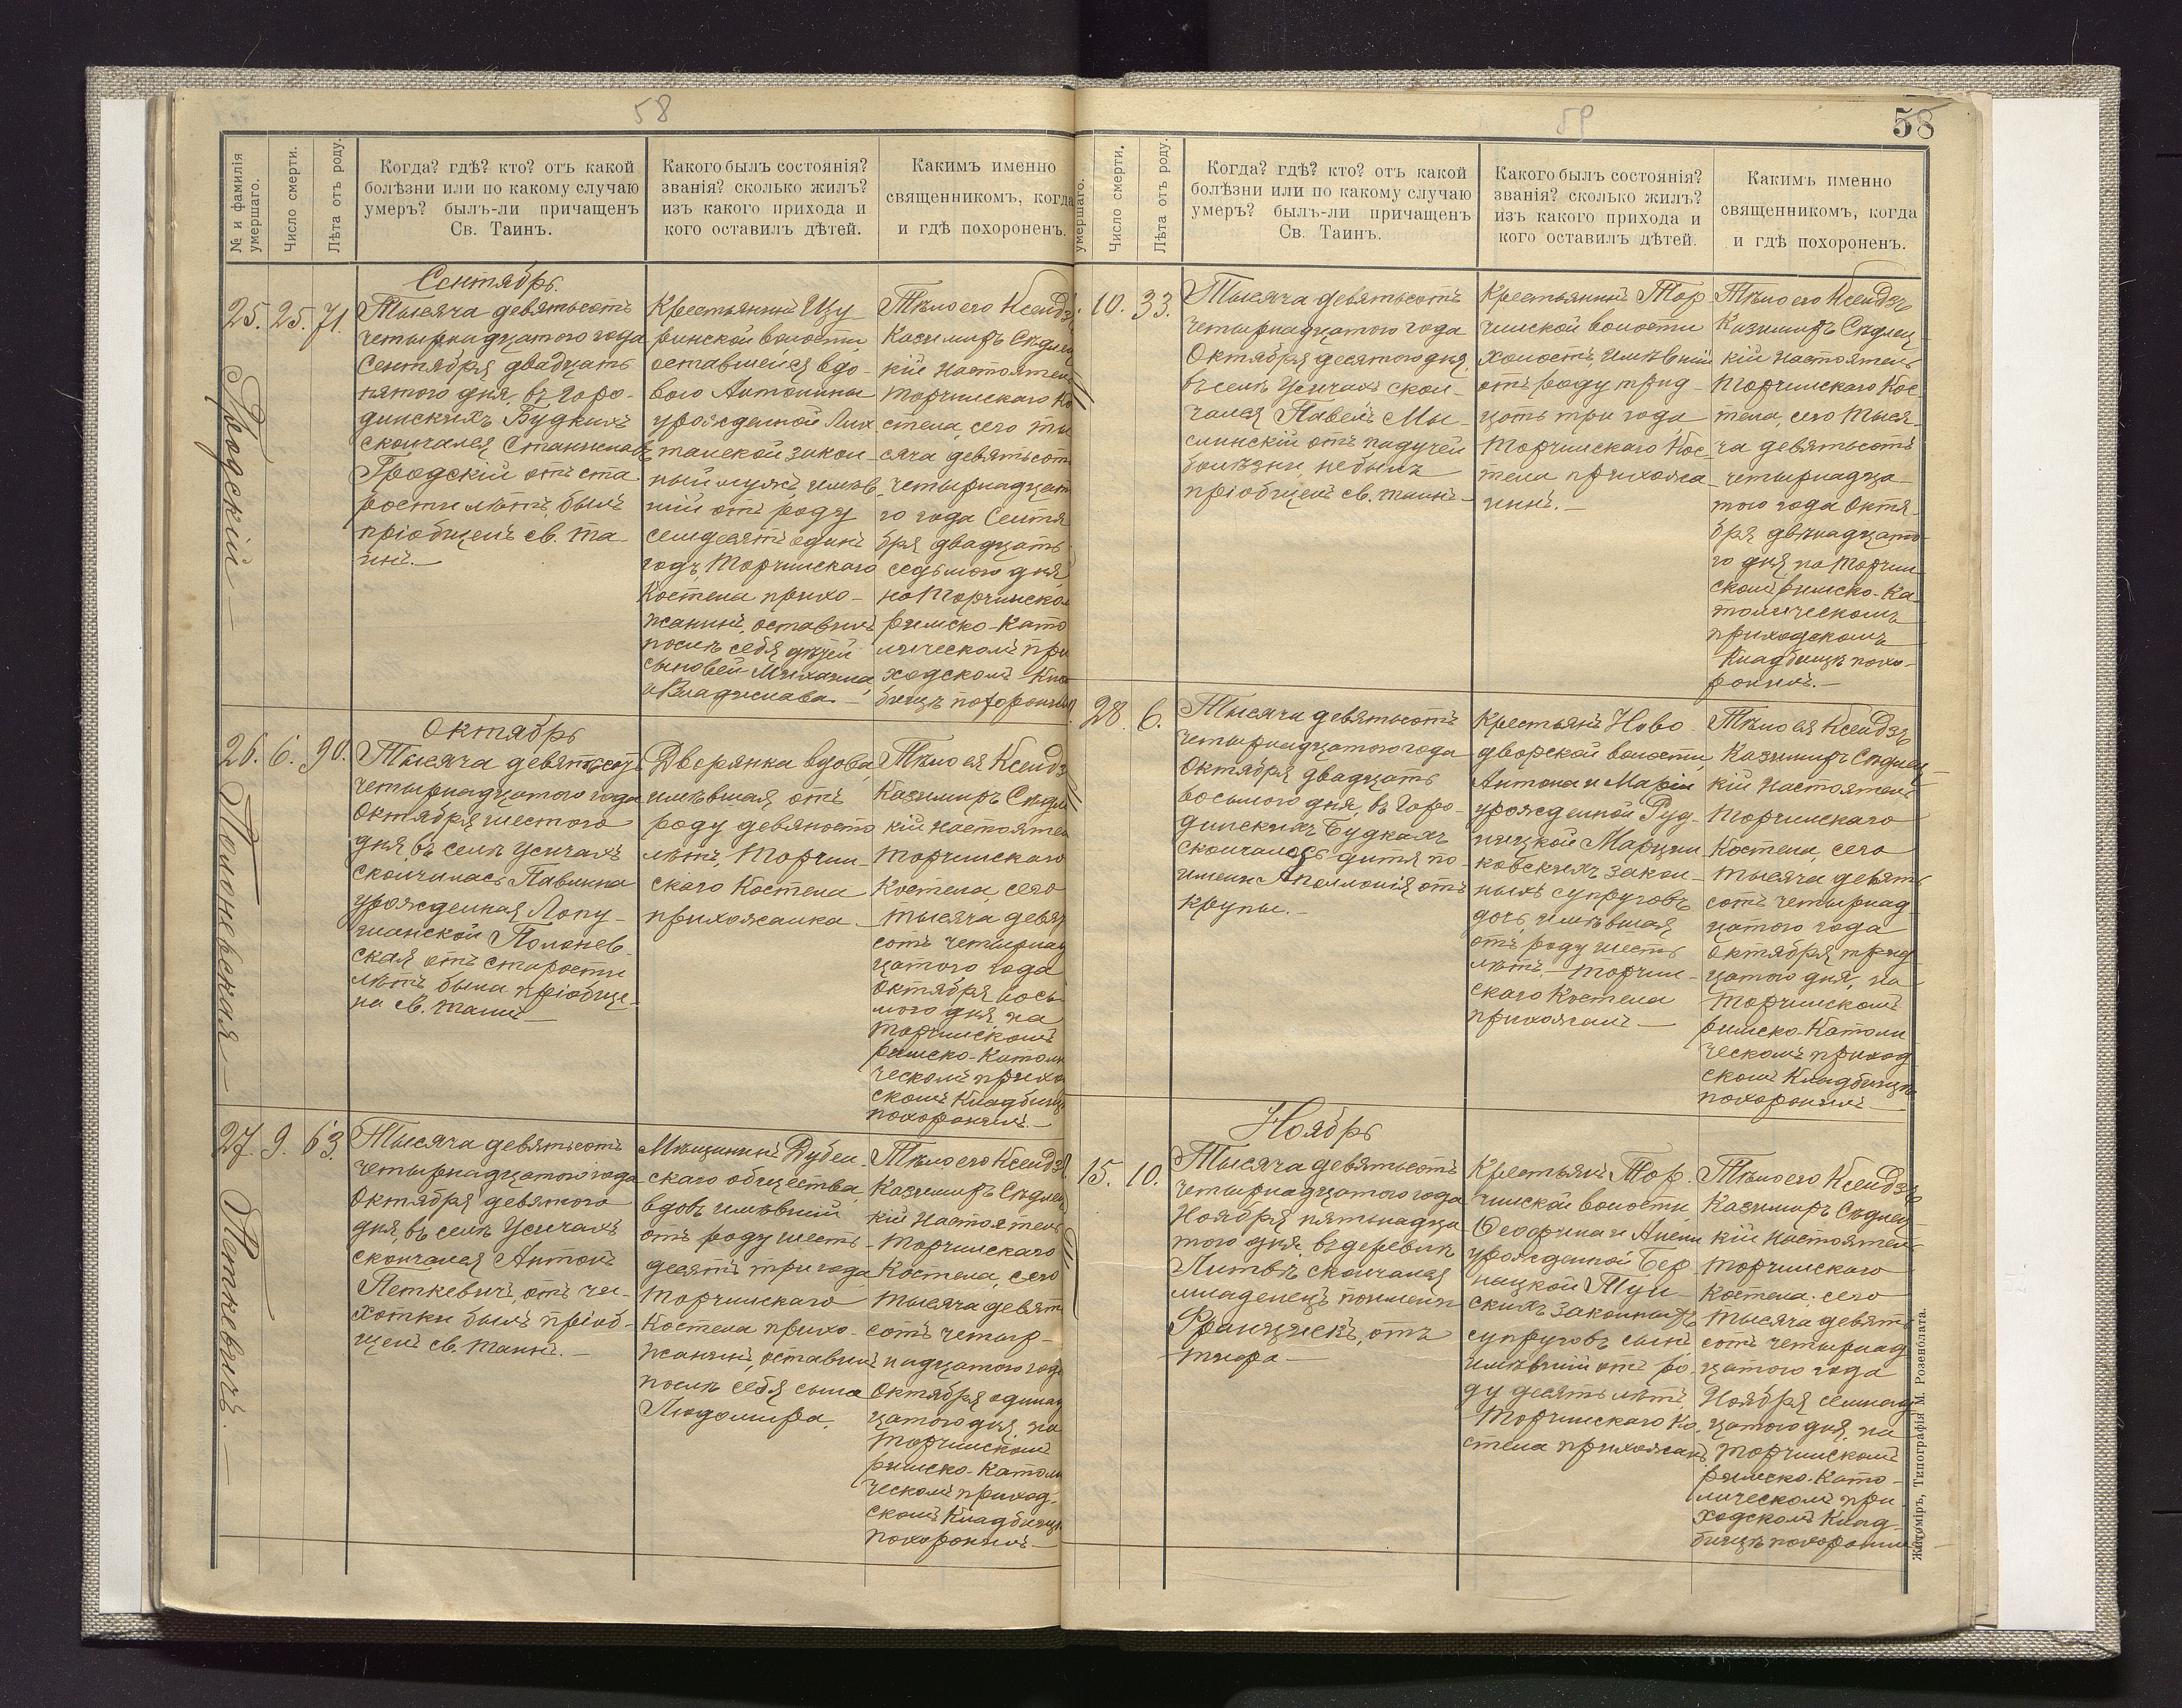 58
№ и фамилія умершаго.
Число смерти.
Лѣта отъ роду.
Когда? гдѣ? кто? отъ какой
болѣзни или по какому случаю
умеръ? былъ-ли причащенъ
Св. Таинъ.
Какого былъ состоянія?
званія? сколько жилъ?
изъ какого прихода и
кого оставилъ дѣтей.
Каким именно
священникомъ, когда
и гдѣ похороненъ.
25.
Гродскій
25.
71.
Сентябрь.
Тысяча девятьсотъ
четырнадцатого года
Сентября двадцать
пятого дня, въ Горо-
динскихъ Будкахъ
скончался Станиславъ
Гродскій отъ ста
рости лѣтъ, былъ
пріобщенъ св. та
инъ.—
Крестьянинъ Щу
ринской волости,
оставшейся вдо-
вою Антонины
урожденной Лих
танской закон-
ный мужъ, имѣв
шій отъ роду
семдесятъ одинъ
годъ, Торчинскаго
Костела прихо-
жанинъ, оставилъ
послѣ себя дѣтей
сыновей Михаила
и Владислава.—
Тѣло его Ксендзъ
Казимиръ Сѣдлец
кій Настоятель
Торчинскаго Ко
стела, сего ты
сяча девятьсотъ
четырнадцат
го года Сентя
бря двадцать
седьмого дня,
на Торчинском
римско-Като
лическомъ при
ходскомъ Клад
бищѣ похоронилъ
26.
Полоневская
6.
90.
Октябрь
Тысяча девятьсотъ
четырнадцатого года
Октября шестого
дня, въ селѣ Усичахъ
скончалась Павлина
урожденная Лопу-
шанской Полонев-
ская, отъ старости
лѣтъ, была пріобще-
на св. таинъ—
Дворянка вдова,
имѣвшая отъ
роду девяносто
лѣтъ, Торчин-
скаго Костела
прихожанка.—
Тѣло ея Ксендзъ
Казимиръ Сѣдле
кій Настоятел
Торчинскаго
Костела, сего
тысяча девят
сотъ четырнад
цатого года
Октября вось-
мого дня, на
Торчинскомъ
римско-Католи
ческомъ прихо
скомъ Кладбищ
похоронилъ.—
27.
Петкевичъ.—
9.
63.
Тысяча девятьсотъ
четырнадцатого года
Октября девятого
дня, въ селѣ Усичахъ
скончался Антонъ
Петкевичъ, отъ ча-
хотки, былъ пріоб-
щенъ св. таинъ.—
Мѣщанинъ Дубен-
скаго общества,
вдовъ, имѣвшій
отъ роду шесть-
десятъ три года
Торчинскаго
Костела прихо-
жанинъ, оставилъ
послѣ себя сына
Людомира.
Тѣло его Ксендзъ
Казимиръ Сѣдлец
кій Настоятель
Торчинскаго
Костела, сего
тысяча девят
сотъ четыр-
надцатого года
Октября одинад
цатого дня, на
Торчинскомъ
римско-Католи
ческомъ приход-
скомъ Кладбищѣ
похоронилъ—
59
58
умершаго.
Число смерти.
Лѣта отъ роду.
Когда? гдѣ? кто? отъ какой
болѣзни или по какому случаю
умеръ? былъ-ли причащенъ
Св. Таинъ.
Какого былъ состоянія?
званія? сколько жилъ?
изъ какого прихода и
кого оставилъ дѣтей.
Какимъ именно
священникомъ, когда
и гдѣ похороненъ.
10.
33.
Тысяча девятьсотъ
четырнадцатого года
Октября десятого дня,
въ селѣ Усичахъ скон-
чался Павелъ Мы-
слинскій отъ падучей
болѣзни, не былъ
пріобщенъ св. таинъ—
Крестьянинъ Тор
чинской волости
холостъ, имѣвшій
отъ роду трид-
цать три года
Торчинскаго Кос-
тела прихожа
нинъ.—
Тѣло его Ксендзъ
Казимиръ Сѣдлец
кій Настоятель
Торчинскаго Кос-
тела, сего тыся-
ча девятьсотъ
четырнадца-
того года Октя-
бря двѣнадцато-
го дня, на Торчин
скомъ римско-Ка
толическомъ
приходскомъ
Кладбищѣ похо-
ронилъ.—
28
6.
Тысяча девятьсотъ
четырнадцатого года
Октября двадцать
восьмого дня, въ Горо-
динскихъ Будкахъ
скончалось дитя по
имени Аполлонія отъ
крупы.—
Крестьянъ Ново-
дворской волости,
Антона и Маріи
урожденной Руд-
ницкой Марцин
ковскихъ закон-
ныхъ супруговъ
дочь, имѣвшая
отъ роду шесть
лѣтъ.— Торчин-
скаго Костела
прихожанъ—
Тѣло ея Ксендзъ
Казимиръ Сѣдлец
кій Настоятель
Торчинскаго
Костела, сего
тысяча девять
сотъ четырнад
цатого года
Октября трид-
цатого дня, на
Торчинскомъ
римско-Католи
ческомъ приход
скомъ Кладбищѣ
похоронилъ—
15.
10.
Ноябрь
Тысяча девятьсотъ
четырнадцатого года
Ноября пятьнадца
того дня, въ деревнѣ
Литвѣ скончался
младенецъ по имени
Францискъ, отъ
тифа—
Крестьянъ Тор-
чинской волости,
Феофила и Анели
урожденной Бер
нацкой
скихъ законныхъ
супруговъ сынъ
имѣвшій отъ ро-
ду десять лѣтъ,
Торчинскаго Ко-
стела прихожанъ
Тѣло его Ксендзъ
Казимиръ Сѣдлец
кій Настоятель
Торчинскаго
Костела, сего
тысяча девять
сотъ четырнад
цатого года
Ноября семнад
цатого дня, на
Торчинскомъ
римско-Като-
лическомъ при
ходскомъ Клад-
бищѣ похоронилъ
Житоміръ, Типографія М. Розенблата.